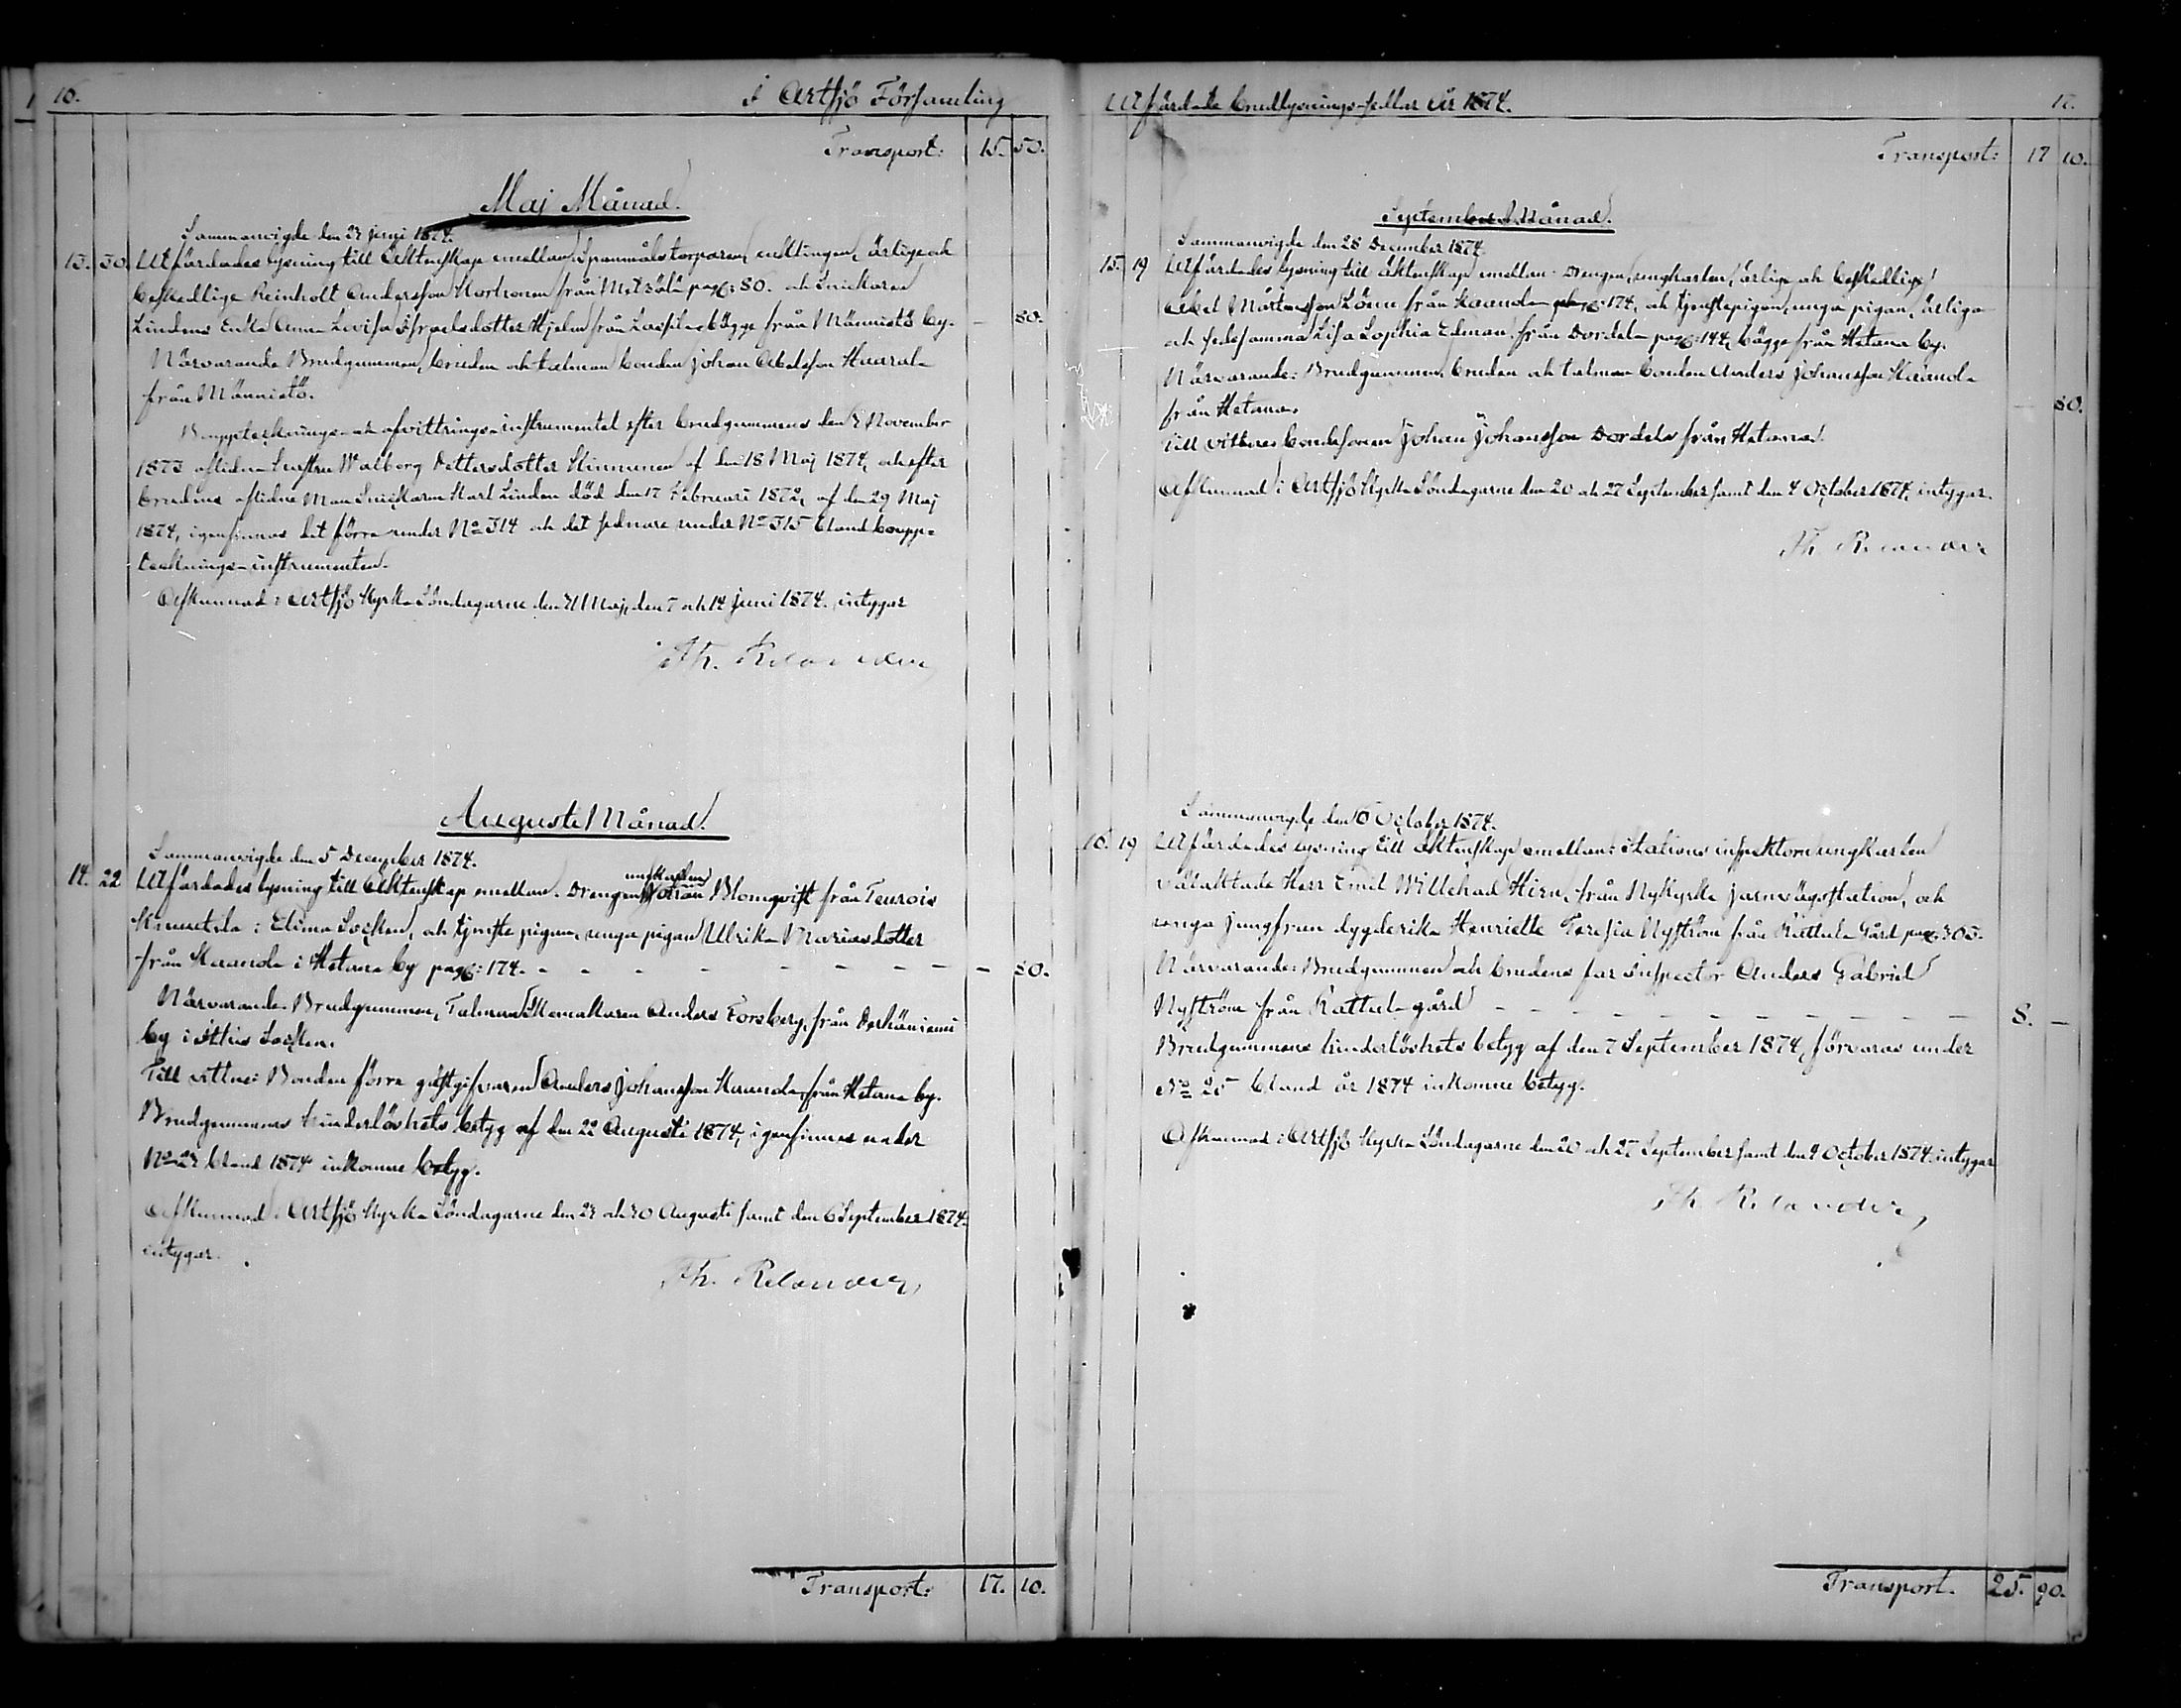 16.
I Artsjö Församling
Transport: 15. 50.
Maj Månad.
Sammanvigde den 24 juni 1874.
13. 30. Utfärdades lysning till Äktenskap emellan Spanmålstorparen, enklingen, ärlige och
beskedlige Reinholt Andersson Korhonen från Metsälä pag: 80. och Snickaren
Lindens Enka Anna Lovisa Israelsdotter Hjelm från Lassila bägge från Männistö by. — 80.
Närvarande Brudgummen, bruden och talman bonden Johan Abelsson Haarala
från Männistö.
Bouppteknings- och afvittrings-instrumentet efter brudgummens den 4 November
1873 aflidna hustru Walborg Pettersdotter Hinnunen af den 18 Maj 1874, och efter
brudens aflidne Man Snickaren Karl Linden död den 17 Februari 1872, af den 29 Maj
1874, igenfinnas det förra under No 314 och det sednare under No 315 bland boupp-
tecknings-instrumenten.
Afkunnad i Artsjö Kyrka Söndagarne den 31 Maj, den 7 och 14 Juni 1874, intygar
Th. Relander
Augusti Månad.
Sammanvigde den 5 December 1874.
ungkarlen
14. 22 Utfärdades lysning till Äktenskap emellan: Drengen Blomqvist från Teurois
Kimentila i Elimä Socken, och tjenstepigan, unga pigan Ulrika Mariasdotter
från Kaanola i Hetana by pag: 174. — 80.
Närvarande Brudgummen, Talman Skomakaren Anders Forsberg, från Perhäniemi
by i Ittis Socken.
Till vittne: Bonden förra gästgifvaren Anders Johansson Kaanola, från Hetana by.
Brudgummens hinderlöshets betyg af den 22 Augusti 1874, igenfinnes under
No 24 bland 1874 inkomne betyg.
Afkunnad i Artsjö Kyrka Söndagarne den 23 och 30 Augusti samt den 6 September 1874.
intygar.
Th. Relander
Transport: 17. 10.
Utfärdade brudlysnings-sedlar År 1874.
17.
Transport: 17 10.
September Månad.
Sammanvigde den 28 December 1874.
15. 19 Utfärdades lysning till äktenskap emellan: Drengen, ungkarlen, ärlige och beskedlige
Abel Mårtensson Lönn från Kaanola pag: 174, och tjenstepigan, unga pigan, ärliga
och sedesamma Lisa Sophia Edman från Dordela pag: 144, bägge från Hetana by.
Närvarande: Brudgummen, bruden och talman bonden Anders Johansson Kaanola
från Hetana. — 80.
Till vittne bondesonen Johan Johansson Dordela från Hetana.
Afkunnad i Artsjö Kyrka Söndagarne den 20 och 27 September samt den 4 October 1874, intygar.
Th. Relander
Sammanvigde den 16 October 1874.
16. 19 Utfärdades lysning till äktenskap emellan: Stations inspektoren ungkarlen
välaktade Herr Emil Willehad Hirn, från Nykyrka jernvägsstation, och
unga jungfrun dygderika Henriette Teresia Nyström från Rattula Gård pag: 303.
Närvarande: Brudgummen och brudens far Inspector Anders Gabriel
Nyström från Rattula gård 8. —
Brudgummens hinderlöshets betyg af den 7 September 1874, förvaras under
No 25 bland år 1874 inkomne betyg.
Afkunnad i Artsjö Kyrka Söndagarne den 20 och 27 September samt den 4 October 1874. intygar
Th. Relander
Transport. 25. 90.